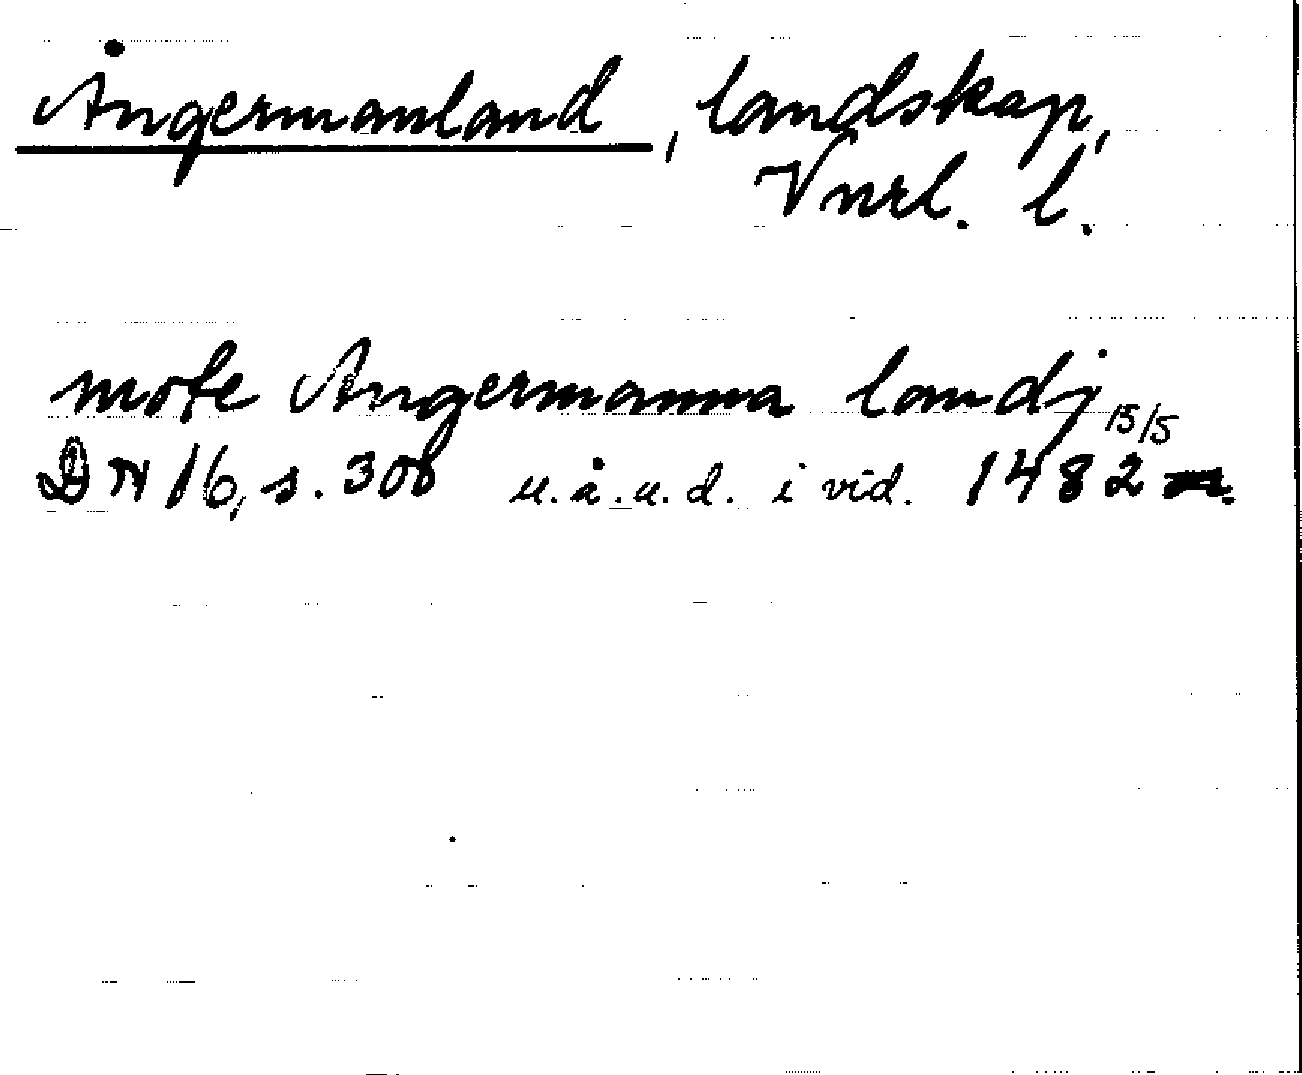 Ångermanland, landskap,
Vnrl. l.
mote Angermanna landj
DN 16, s. 306 u.å.u.d. i vid. 15/5 1482